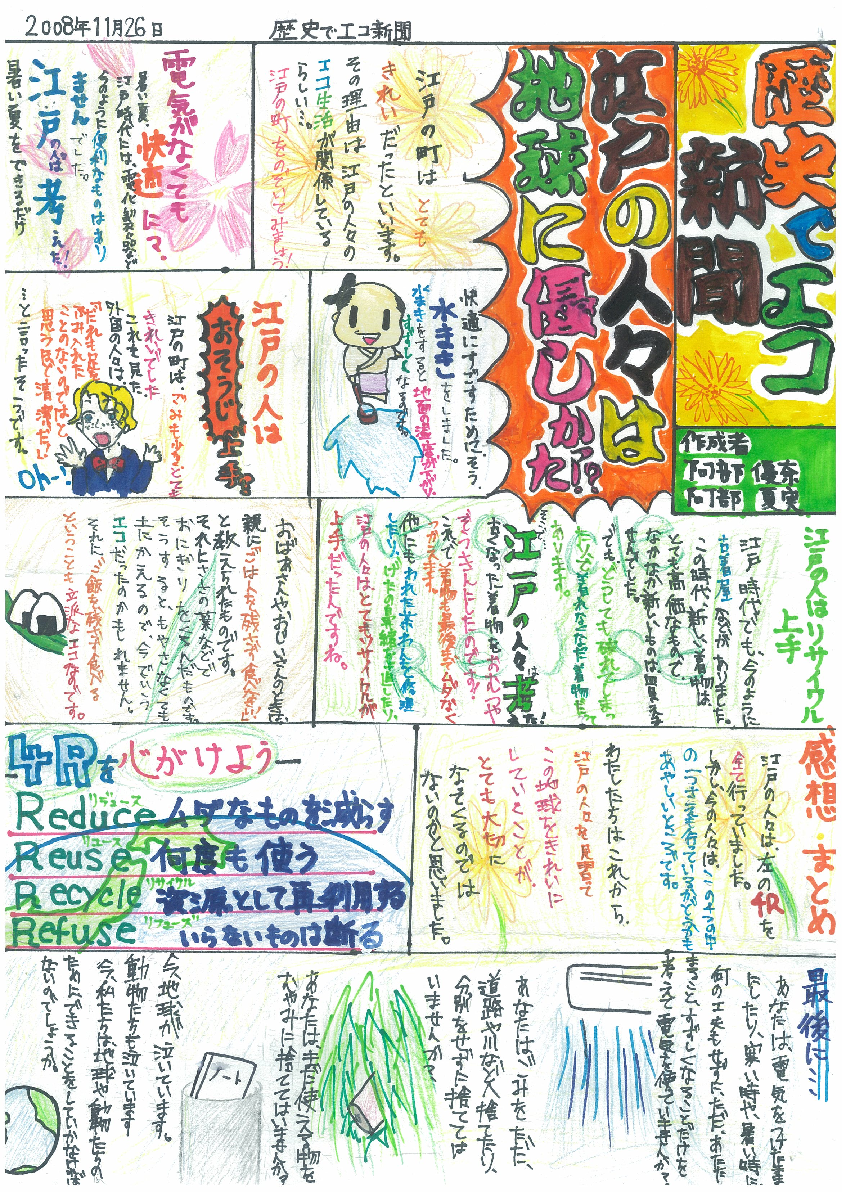 2008年11月26日
歴史でエコ新聞
歴史でエコ
新聞
作成者
阿部 優奈
阿部 夏実
江戸の人々は
地球に優しかた!?
江戸の町は とても
きれいだったといいます。
その理由は 江戸の人々の
エコ生活が関係している
らしい…。
江戸の町をのぞいてみましょう!
電気がなくても
快適に♥
暑い夏、
江戸時代には、電化製品など
今のように便利なものはあり
ませんでした。
江戸の人は 考えた!
暑い夏をできるだけ
快適にすごすためにそう、
水まきをしました。
水まきをすると地面の温度が下がり、
すずしくなるのです。
江戸の人は
おそうじ
上手
江戸の町は、ごみも少なくとても
きれいでした
これを見た
外国の人々は
「だれも足を
ふみ入れた
ことのないのではと
思うほど清潔だ!」
…と言ったそうです。
Oh-!
江戸の人はリサイクル
上手
江戸時代でも、今のように
古着屋などがありました。
この時代、新しい着物は
とても高価なもので
なかなか新しいものは買えま
せんでした。
でも、どうしても破れてしまっ
たりして着れなくなた着物だって
あります。
そこで
江戸の人々は考えた!
古くなった着物をおむつや
ぞうきんにしたのです!
これで着物も最後までムダなく
つかえます。
他にもわれた茶わんを修理
したり、げたの鼻緒を直したり、
江戸の人々はとてもリサイクルが
上手だったんですね。
おばあさんやおじいさんの多くは、
親に「ごはんを残さず食べなさい!」
と教えられたものです。
それに、ささの葉などで
おにぎりをつつんだものです。
そうするともやさなくても
土にかえるので、今でいう
エコだったのかもしれません。
それに、ご飯を残さず食べる
ということも立派なエコなのです。
感想・まとめ
江戸の人々は、左の4Rを
全て行っていました。
しかし今の人々は、この4つの中
の一つさえ行っているかどうかも
あやしいところです。
わたしたちはこれから、
江戸の人々を見習って
この地球をきれいに
していくことが、
とても大切に
なってくるのでは
ないのかと思いました。
4Rを心がけよう
Reduce リデュース ムダなものを減らす
Reuse リユース 何度も使う
Recycle リサイクル 資源として再利用する
Refuse リフューズ いらないものは断る
最後に…
あなたは電気をつけたまま
にしたり、寒い時や、暑い時に
何の工夫もせずに、ただあたたまること、すずしくなることだけを
考えて電気を使っていませんか?
あなたはごみをただ、
道路や川などへ捨てたり、
分別をせずに捨てては
いませんか?
あなたは、まだ使える物を
むやみに捨ててはいませんか?
ノート
今、地球が泣いています。
動物たちも泣いています
今、私たちは、地球や動物たちの
ためにできることをしていかなければ
ないのでしょうか。